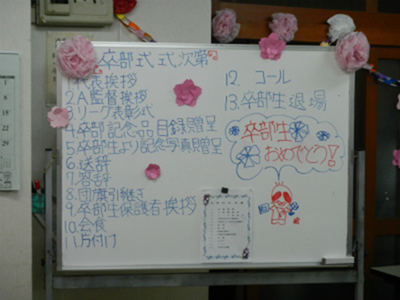 卒部式式次第
1.代表挨拶
2.A監督挨拶
3.リーグ表彰式
4.卒部記念品目録贈呈
5.卒部生より記念写真贈呈
6.送辞
7.答辞
8.団旗引継ぎ
9.卒部生保護者挨拶
10.会食
11.片付け
12.コール
13.卒部生退場
卒部生
おめでとう!